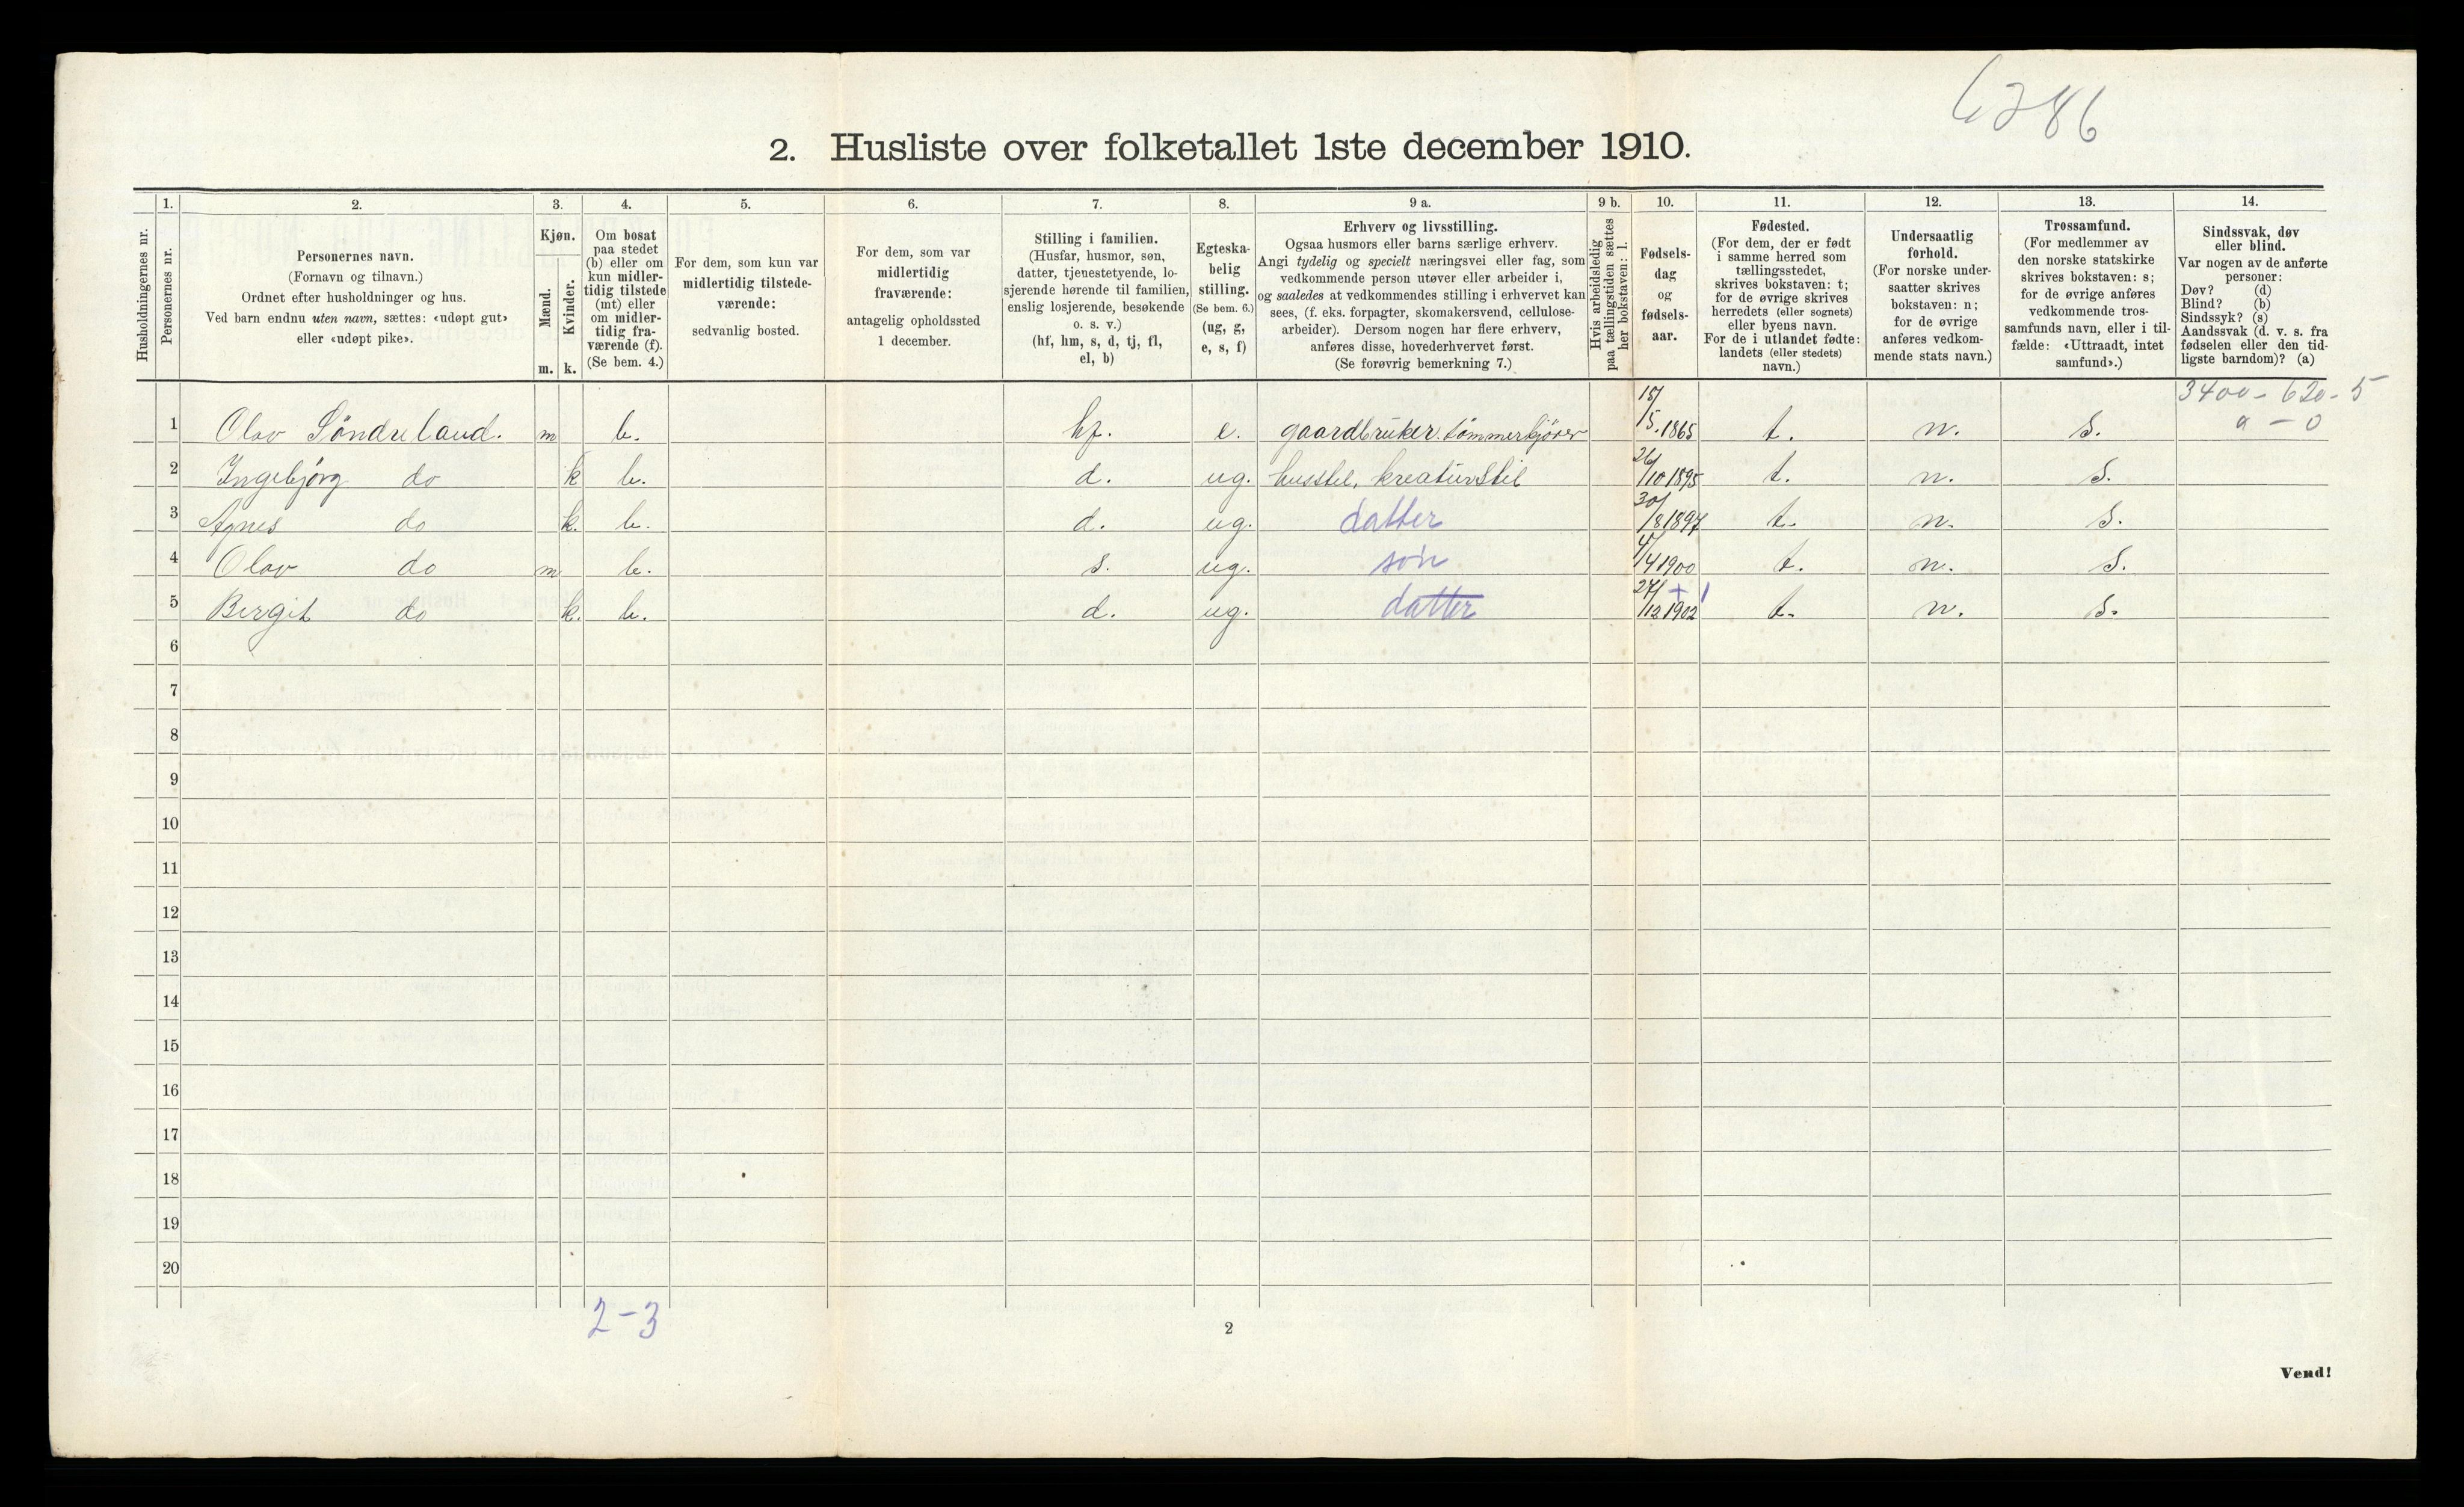 6286
2. Husliste over folketallet 1ste december 1910.
Husholdningernes nr.
1.
Personernes nr.
2.
Personernes navn.
(Fornavn og tilnavn.)
Ordnet efter husholdninger og hus.
Ved barn endnu uten navn, sættes: «udøpt gut»
eller «udøpt pike».
3.
Kjøn.
Mænd.
Kvinder.
m. k.
4.
Om bosat
paa stedet
(b) eller om
kun midler-
tidig tilstede
(mt) eller
om midler-
tidig fra-
værende (f).
(Se bem. 4.)
5.
For dem, som kun var
midlertidig tilstede-
værende:
sedvanlig bosted.
6.
For dem, som var
midlertidig
fraværende:
antagelig opholdssted
1 december.
7.
Stilling i familien.
(Husfar, husmor, søn,
datter, tjenestetyende, lo-
sjerende hørende til familien,
enslig losjerende, besøkende
o. s. v.)
(hf, hm, s, d, tj, fl,
el, b)
8.
Egteska-
belig
stilling.
(Se bem. 6.)
(ug, g,
e, s, f)
9 a.
Erhverv og livsstilling.
Ogsaa husmors eller barns særlige erhverv.
Angi tydelig og specielt næringsvei eller fag, som
vedkommende person utøver eller arbeider i,
og saaledes at vedkommendes stilling i erhvervet kan
sees, (f. eks. forpagter, skomakersvend, cellulose-
arbeider). Dersom nogen har flere erhverv,
anføres disse, hovederhvervet først.
(Se forøvrig bemerkning 7.)
9 b.
Hvis arbeidsledig
paa tællingstiden sættes
her bokstaven: l.
10.
Fødsels-
dag
og
fødsels-
aar.
11.
Fødested.
(For dem, der er født
i samme herred som
tællingsstedet,
skrives bokstaven: t;
for de øvrige skrives
herredets (eller sognets)
eller byens navn.
For de i utlandet fødte:
landets (eller stedets)
navn.)
12.
Undersaatlig
forhold.
(For norske under-
saatter skrives
bokstaven: n;
for de øvrige
anføres vedkom-
mende stats navn.)
13.
Trossamfund.
(For medlemmer av
den norske statskirke
skrives bokstaven: s;
for de øvrige anføres
vedkommende tros-
samfunds navn, eller i til-
fælde: «Uttraadt, intet
samfund».)
14.
Sindssvak, døv
eller blind.
Var nogen av de anførte
personer:
Døv? (d)
Blind? (b)
Sindssyk? (s)
Aandssvak (d. v. s. fra
fødselen eller den tid-
ligste barndom)? (a)
3400 - 620 - 5
a - 0
1 Olav Söndreland. m b. hf. e. gaardbruker. tömmerkjörer 15/5.1865 t. n. s.
2 Ingebjörg do k b. d. ug. husstel, kreaturstel 26/10 1895 t. n. s.
3 Agnes do k. b. d. ug. datter 30/8 1897 t. n. s.
4 Olav do m b. s. ug. sön 4/4 1900 t. n. s.
5 Bergit do k. b. d. ug. datter 27/12 1902 t. n. s.
6
7
8
9
10
11
12
13
14
15
16
17
18
19
20
2-3
2
Vend!